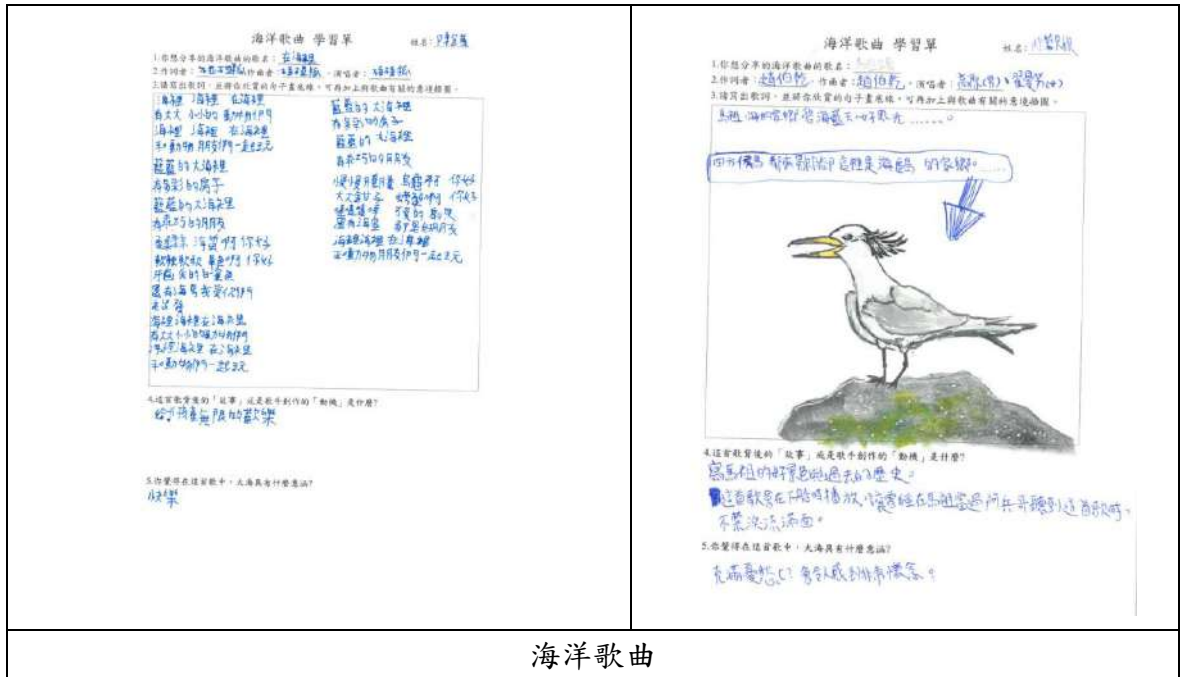 海洋歌曲 學習單 姓名:
1.你想分享的海洋歌曲的歌名:在海裡
2.作詞者:碰碰狐 作曲者:碰碰狐,演唱者:碰碰狐
3.請寫出歌詞,並將你欣賞的句子畫底線,可再加上與歌曲有關的意境插圖。
海裡 海裡 在海裡
有大大小小的動物們
海裡 海裡 在海裡
和動物朋友們一起玩
藍藍的大海裡
有多彩的房子
藍藍的大海裡
有乖巧的朋友
海葵啊 你好
軟軟軟軟 章魚啊 你好
牙齒 的白鯊魚
還有海馬我愛你們
海裡海裡在海裡
有大大小小的動物們
海裡海裡 在海裡
和動物們一起玩
藍藍的大海裡
有多彩的房子
藍藍的大海裡
有乖巧的朋友
慢慢 烏龜啊 你好
大大鉗子 螃蟹啊 你好
可愛的
還有海星 都是好朋友
海裡海裡 在海裡
和動物朋友們一起玩
4.這首歌背後的「故事」或是歌手創作的「動機」是什麼?
給小孩無限的歡樂
5.你覺得在這首歌中,大海具有什麼意涵?
快樂
海洋歌曲 學習單 姓名:
1.你想分享的海洋歌曲的歌名:
2.作詞者:趙伯乾,作曲者:趙伯乾,演唱者:
3.請寫出歌詞,並將你欣賞的句子畫底線,可再加上與歌曲有關的意境插圖。
馬祖 海的故鄉 碧海藍天好風光……。
四方僑鳥都來歡聚 這裡是海鷗 的家鄉。……
4.這首歌背後的「故事」或是歌手創作的「動機」是什麼?
寫馬祖的好景色和過去的歷史。
這首歌會在下船時播放,讓曾經在馬祖當過阿兵哥聽到這首歌時,
不禁淚流滿面。
5.你覺得在這首歌中,大海具有什麼意涵?
充滿憂愁 會令人感到非常懷念。
海洋歌曲